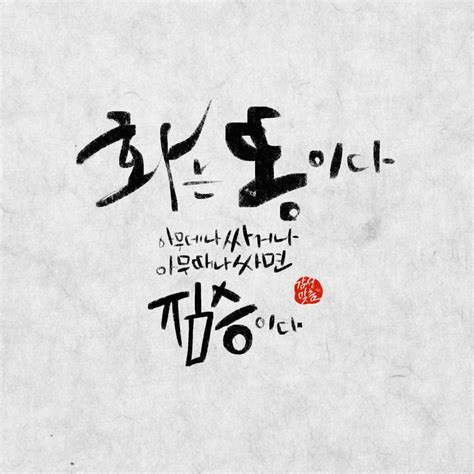 화는 똥이다
아무데나 싸거나
아무때나 싸면
짐승이다.
감성
막품